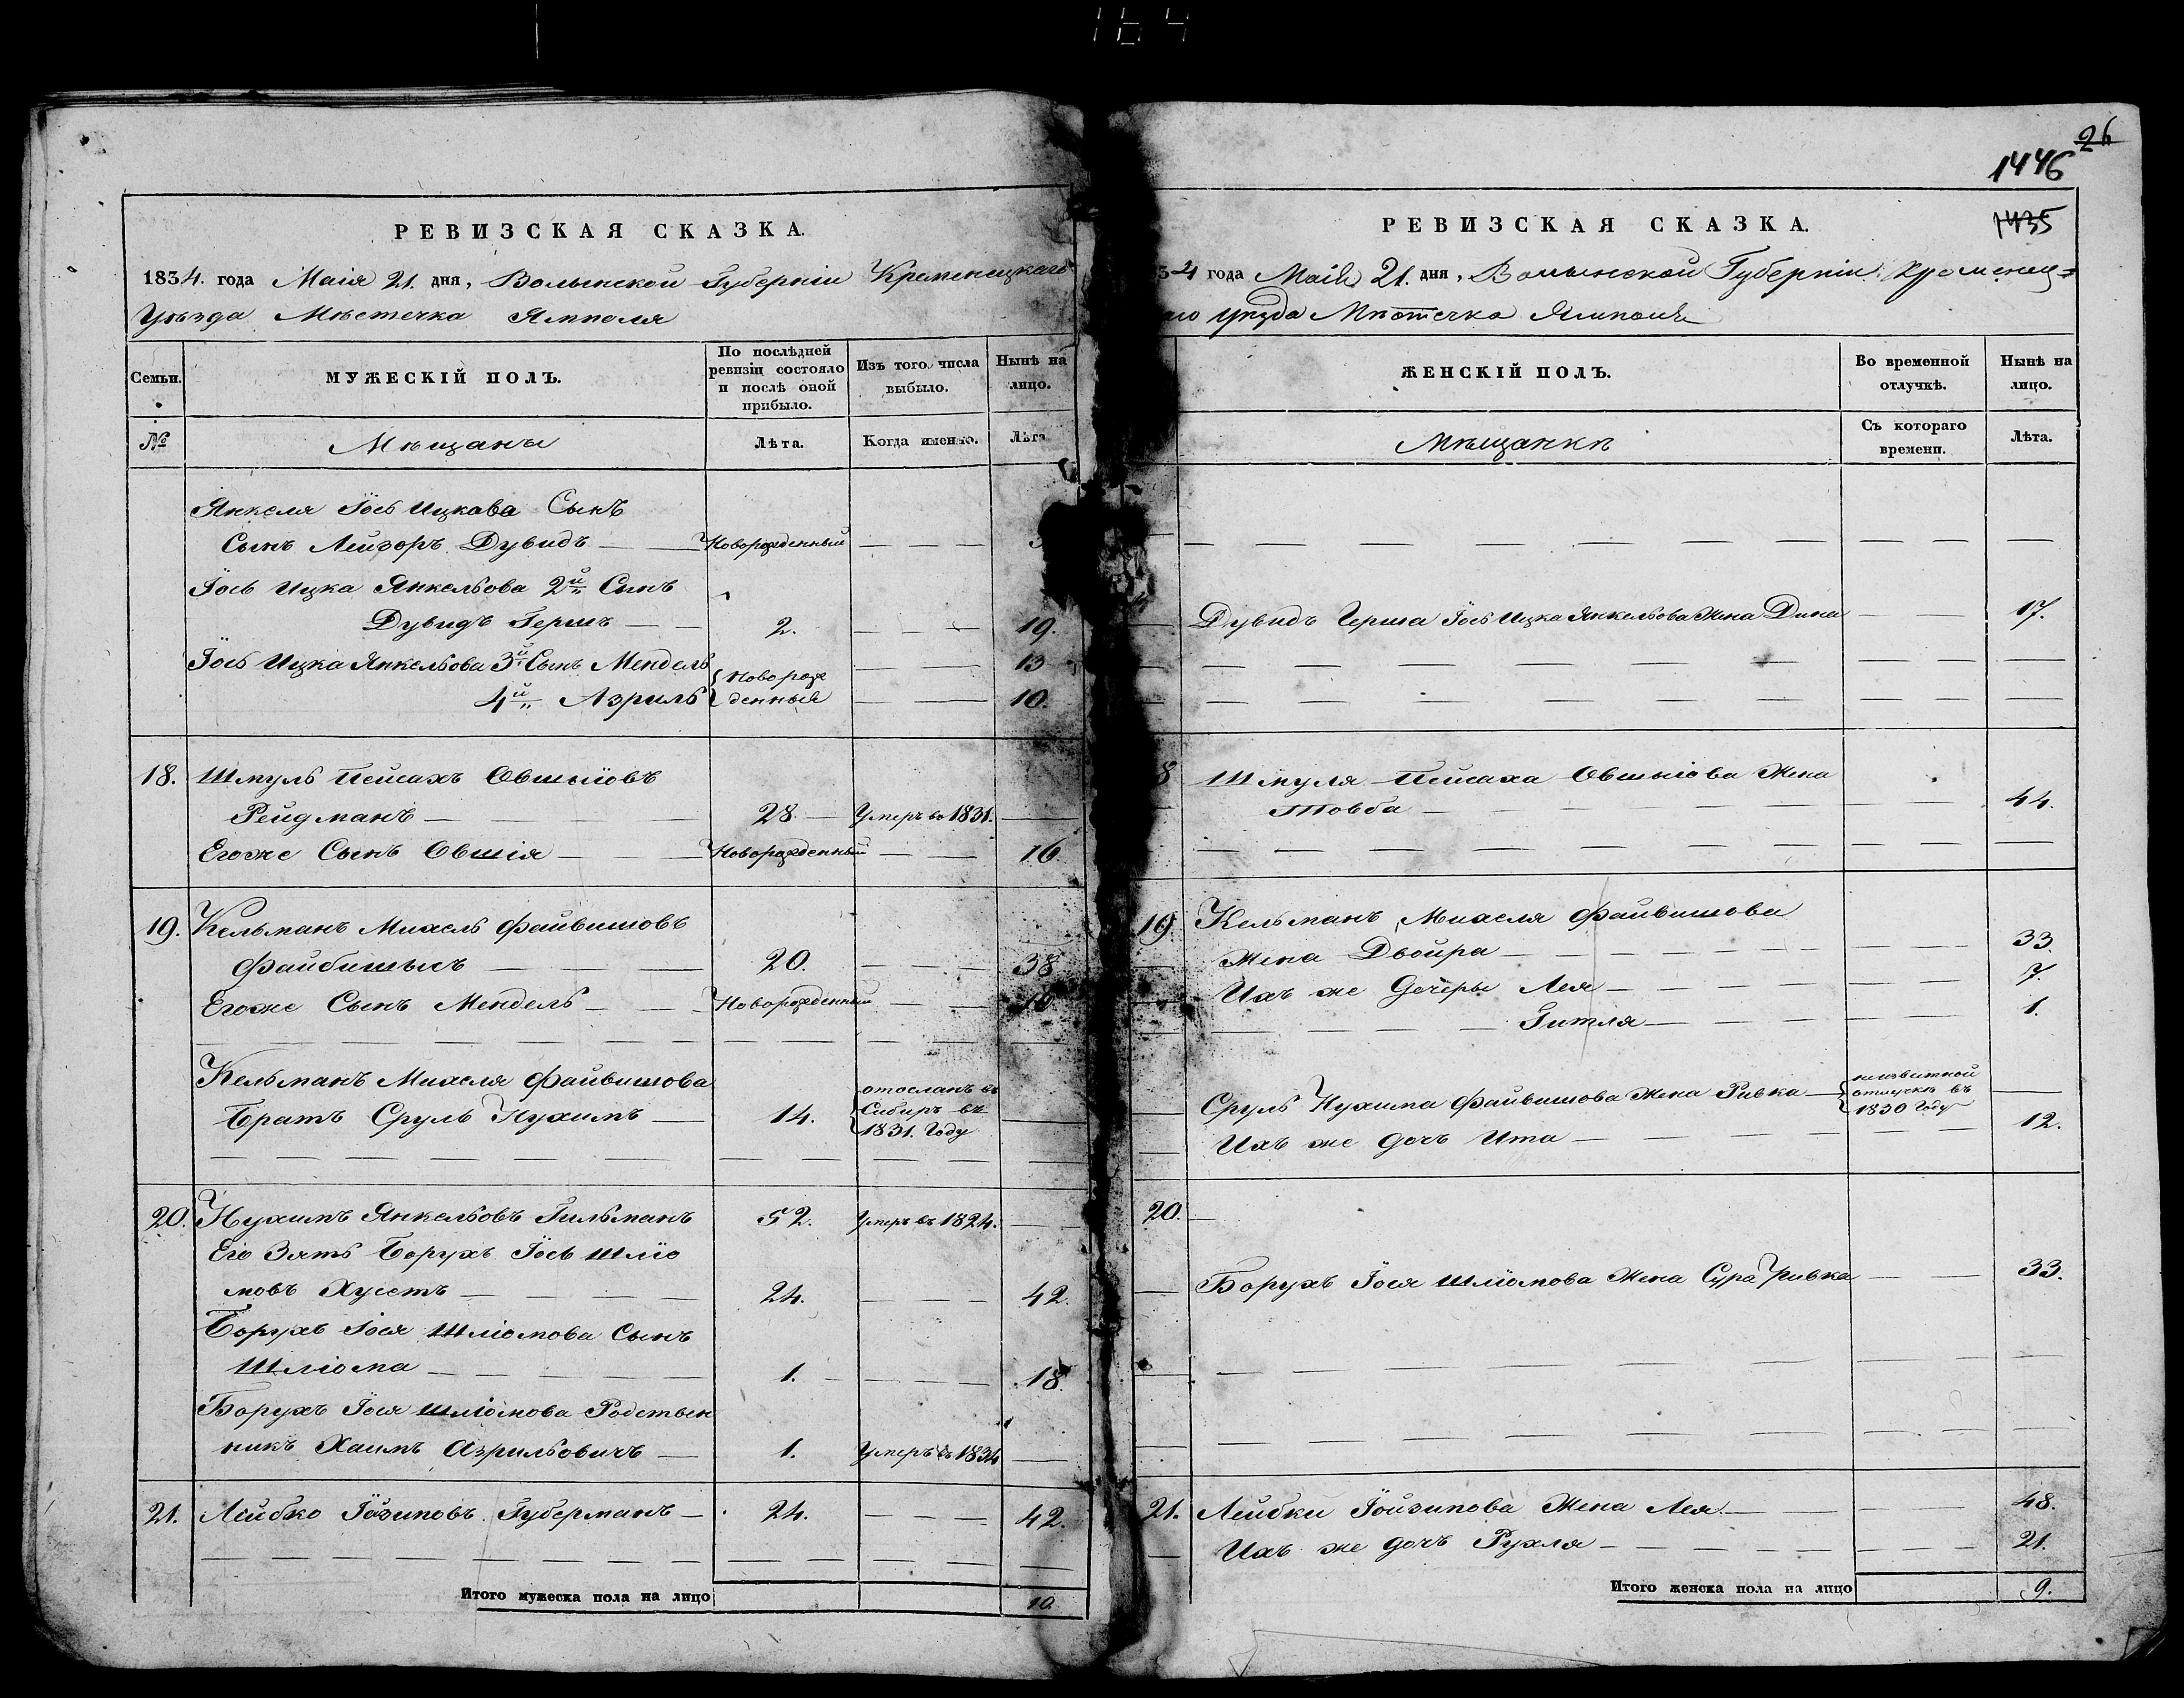 164
РЕВИЗСКАЯ СКАЗКА.
1834. года Маія 21. дня, Волынской Губерніи Кременецкаго
Уѣзда Мѣстечка Ямполя
Семьи.
МУЖЕСКІЙ ПОЛЪ.
По послѣдней ревизіи состояло и послѣ оной прибыло.
Изъ того числа выбыло.
Нынѣ на лицо.
№
Мѣщане
Лѣта.
Когда именно.
Лѣта
Янкеля Іось Ицкава Сынъ
Сынъ Лейзоръ Дувидъ — Новорожденный — —
Іось Ицка Янкельова 2й Сынъ
Дувидъ Гершъ — 2. — — — 19.
Іось Ицка Янкельова 3й Сынъ Мендель Новорож — — 13
4й Азриль денные — — 10.
18. Шмуль Пейсахъ Овшыіовъ
Рейдманъ — 28. — Умеръ въ 1831. —
Егоже Сынъ Овшія — Новорожденный — — 16
19. Кельманъ Михель Файвишовъ
Файбишысъ — — — 20. — — — 38
Егоже Сынъ Мендель — — — Новорожденный — — 16
Кельманъ Михеля Файвишова
Братъ Сруль Нухимъ — 14. отосланъ въ Сибирь въ 1831. Году —
20. Нухимъ Янкельовъ Гильманъ 52. Умеръ въ 1824. —
Его Зять Борухъ Іось Шліо
мовъ Хусетъ — — — — 24. — — — 42.
Борухъ Іося Шліомова Сынъ
Шліома — — — — 1. — — — — 18.
Борухъ Іося Шліомова Родствен
никъ Хаимъ Азрильовичъ — 1. Умеръ въ 1834 —
21. Лейбко Іойзиповъ Губерманъ — 24. — — — 42.
Итого мужеска пола на лицо 10.
26
1446
1435
РЕВИЗСКАЯ СКАЗКА.
34 года Маія 21. дня, Волынской Губерніи Кременец=
аго Уѣзда Мѣстечка Ямполя
ЖЕНСКІЙ ПОЛЪ.
Во временной отлучкѣ.
Нынѣ на лицо.
Мѣщанки
Съ котораго времени.
Лѣта.
Дувидъ Герша Іось Ицка Янкельова Жена Дина — — 17.
8 Шмуля Пейсаха Овшыіова Жена
Товба — — — — — 44.
19. Кельманъ Михеля Файвишова
Жена Двойра — — — — — 33.
Ихъ же дочеры Лея — — — — 7.
Гитля — — — — 1.
Сруль Нухима Файвишова Жена Ривка — неизвѣтной отлучкѣ въ 1830 Году —
Ихъ же дочь Ита — — — — 12.
20. —
Борухъ Іося Шліомова Жена Сура Ривка — — 33.
21. Лейбки Іойзипова Жена Лея — — — 48.
Ихъ же дочь Рухля — — — — 21.
Итого женска пола на лицо 9.